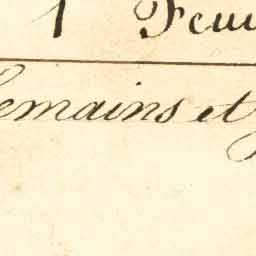 1 Feui
emains et